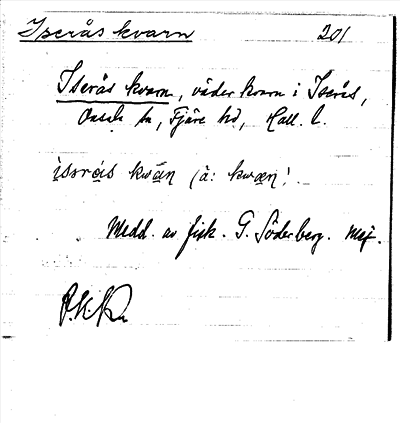 Iserås kvarn 201
Iserås kvarn, väderkvarn i Iserås,
Onsala sn, Fjäre hd, Hall. l.
ìsǝrás kwán (ä: kwæn)!
Medd. av fisk. G. Söderberg.